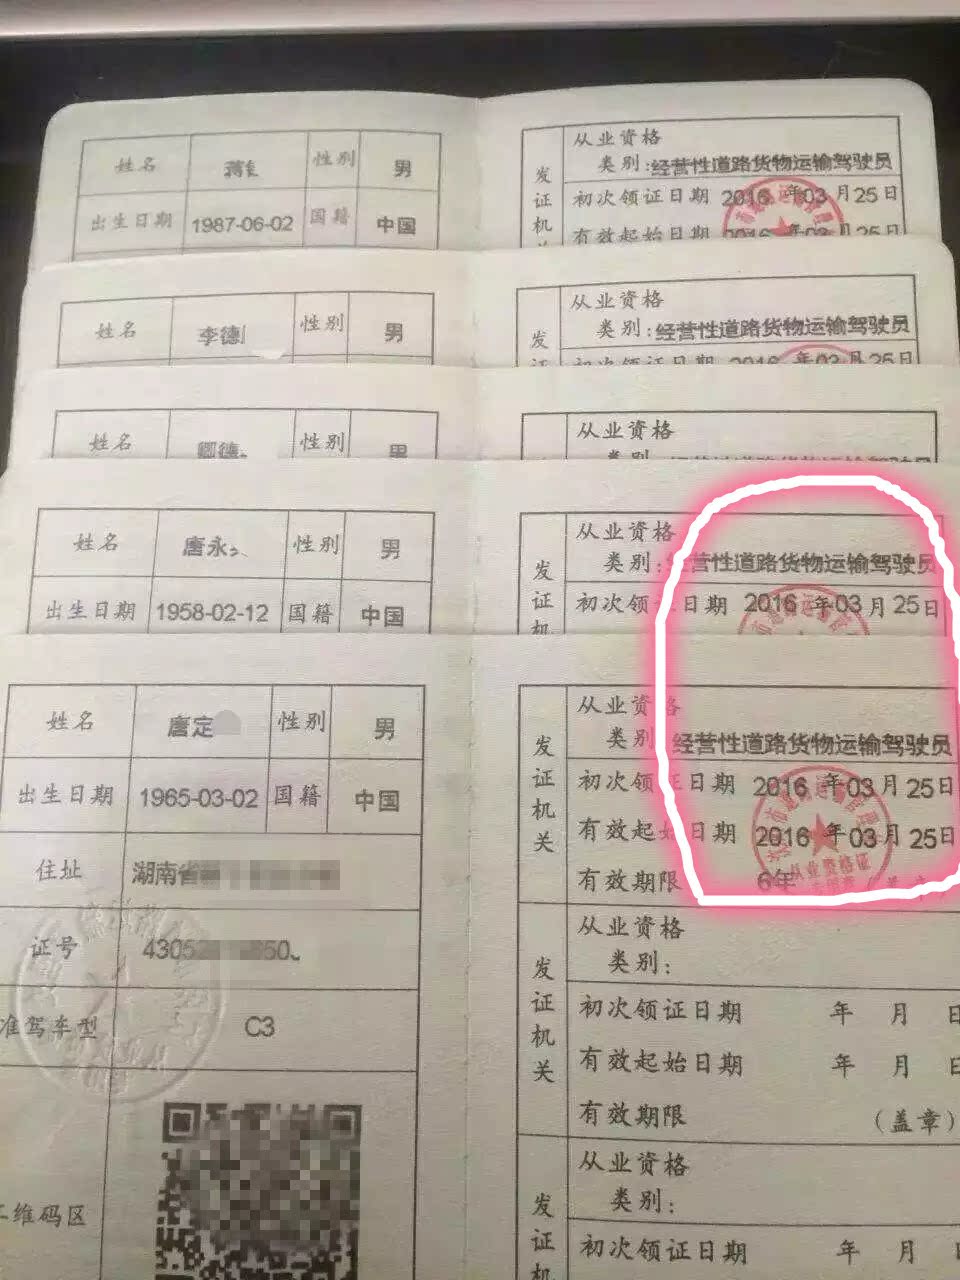 姓名 性别 男
出生日期 1987-06-02 国籍 中国
发证机关
从业资格
类别:经营性道路货物运输驾驶员
初次领证日期 2016年03月25日
有效起始日期 2016年03月25日
姓名 李德 性别 男
发证
从业资格
类别:经营性道路货物运输驾驶员
初次领证日期 2016年03月25日
姓名 性别 男
从业资格
类别
姓名 唐永 性别 男
出生日期 1958-02-12 国籍 中国
发证机
从业资格
类别:经营性道路货物运输驾驶员
初次领证日期 2016年03月25日
姓名 唐定 性别 男
出生日期 1965-03-02 国籍 中国
住址 湖南省
证号 43052 850
准驾车型 C3
二维码区
发证机关
从业资格
类别:经营性道路货物运输驾驶员
初次领证日期 2016年03月25日
有效起始日期 2016年03月25日
有效期限 6年
从业资格证
发证机关
从业资格
类别:
初次领证日期 年 月 日
有效起始日期 年 月 日
有效期限 (盖章)
发证机
从业资格
类别:
初次领证日期 年 月 日